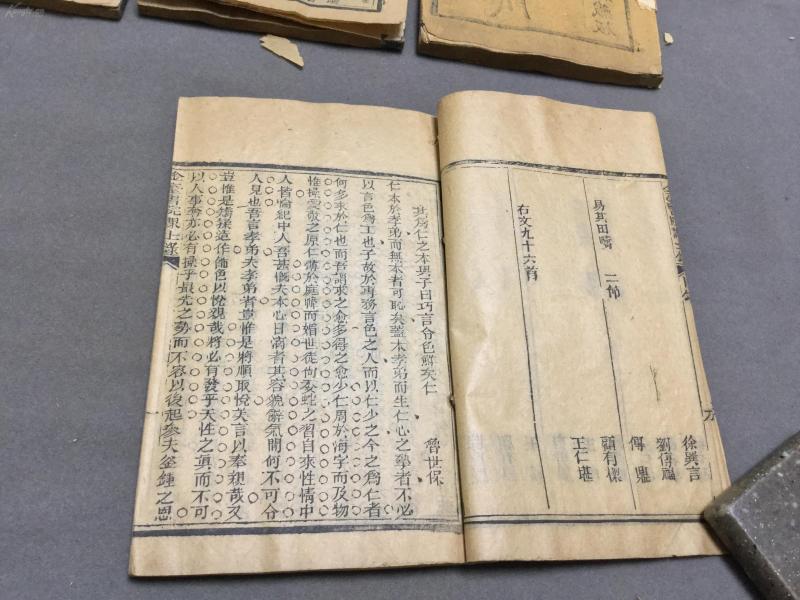 徐興言
劉傳福
傅鼎
顧有樑
王仁堪
易其田疇 二節
右文九十六首
其爲仁之本與子曰巧言令色鮮矣仁
魯世保
仁本於孝弟而無本者可恥矣蓋本孝弟而生仁心之摯者不必
以言色爲工也子故於再務言色之人而以仁少之今之爲仁者
何多求於仁也而吾謂求之愈多得之愈少仁周於海宇而及物
惟操愛敬之原仁薄於庭幃而媚世徒向委蛇之習自來性情中
人皆倫紀中人吾甚慨夫本心日漓者其容貌辭氣間何不可分
人見也吾言孝弟夫孝弟者豈惟是將順取悅美言以奉親哉又
豈惟是矯揉造作飾色以悅親哉將必有發乎天性之眞而不可
以人事參亦必有操乎最先之勢而不容以後起參夫釜鍾之恩
金臺書院課士錄